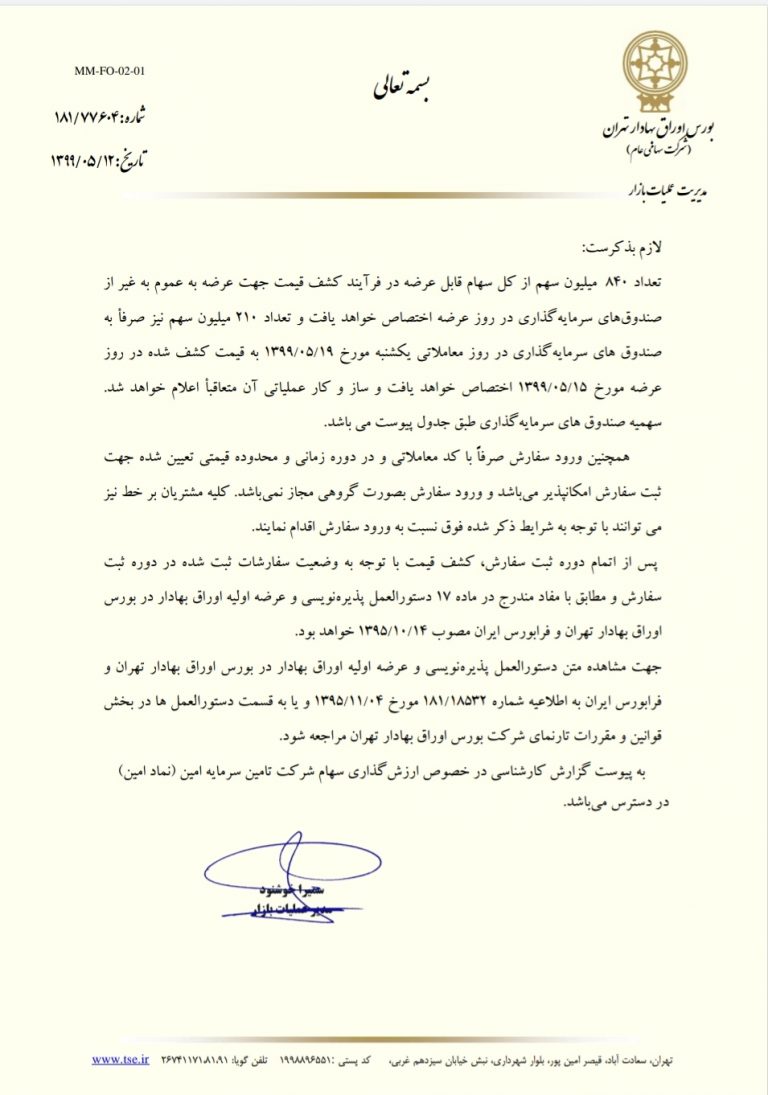 MM-FO-02-01
شماره: ۱۸۱/۷۷۶۰۴
تاریخ: ۱۳۹۹/۰۵/۱۲
بسمه تعالی
بورس اوراق بهادار تهران
(شرکت سهامی عام)
مدیریت عملیات بازار
لازم بذکرست:
تعداد ۸۴۰ میلیون سهم از کل سهام قابل عرضه در فرآیند کشف قیمت جهت عرضه به عموم به غیر از
صندوق‌های سرمایه‌گذاری در روز عرضه اختصاص خواهد یافت و تعداد ۲۱۰ میلیون سهم نیز صرفاً به
صندوق های سرمایه‌گذاری در روز معاملاتی یکشنبه مورخ ۱۳۹۹/۰۵/۱۹ به قیمت کشف شده در روز
عرضه مورخ ۱۳۹۹/۰۵/۱۵ اختصاص خواهد یافت و ساز و کار عملیاتی آن متعاقباً اعلام خواهد شد.
سهمیه صندوق های سرمایه‌گذاری طبق جدول پیوست می باشد.
همچنین ورود سفارش صرفاً با کد معاملاتی و در دوره زمانی و محدوده قیمتی تعیین شده جهت
ثبت سفارش امکانپذیر می‌باشد و ورود سفارش بصورت گروهی مجاز نمی‌باشد. کلیه مشتریان بر خط نیز
می توانند با توجه به شرایط ذکر شده فوق نسبت به ورود سفارش اقدام نمایند.
پس از اتمام دوره ثبت سفارش، کشف قیمت با توجه به وضعیت سفارشات ثبت شده در دوره ثبت
سفارش و مطابق با مفاد مندرج در ماده ۱۷ دستورالعمل پذیره‌نویسی و عرضه اولیه اوراق بهادار در بورس
اوراق بهادار تهران و فرابورس ایران مصوب ۱۳۹۵/۱۰/۱۴ خواهد بود.
جهت مشاهده متن دستورالعمل پذیره‌نویسی و عرضه اولیه اوراق بهادار در بورس اوراق بهادار تهران و
فرابورس ایران به اطلاعیه شماره ۱۸۱/۱۸۵۳۲ مورخ ۱۳۹۵/۱۱/۰۴ و یا به قسمت دستورالعمل ها در بخش
قوانین و مقررات تارنمای شرکت بورس اوراق بهادار تهران مراجعه شود.
به پیوست گزارش کارشناسی در خصوص ارزش‌گذاری سهام شرکت تامین سرمایه امین (نماد امین)
در دسترس می‌باشد.
سمیرا خوشنود
مدیر عملیات بازار
تهران، سعادت آباد، قیصر امین پور، بلوار شهرداری، نبش خیابان سیزدهم غربی، کد پستی :۱۹۹۸۸۹۶۵۵۱ تلفن گویا: ۲۶۷۴۱۱۷۱.۸۱.۹۱ www.tse.ir